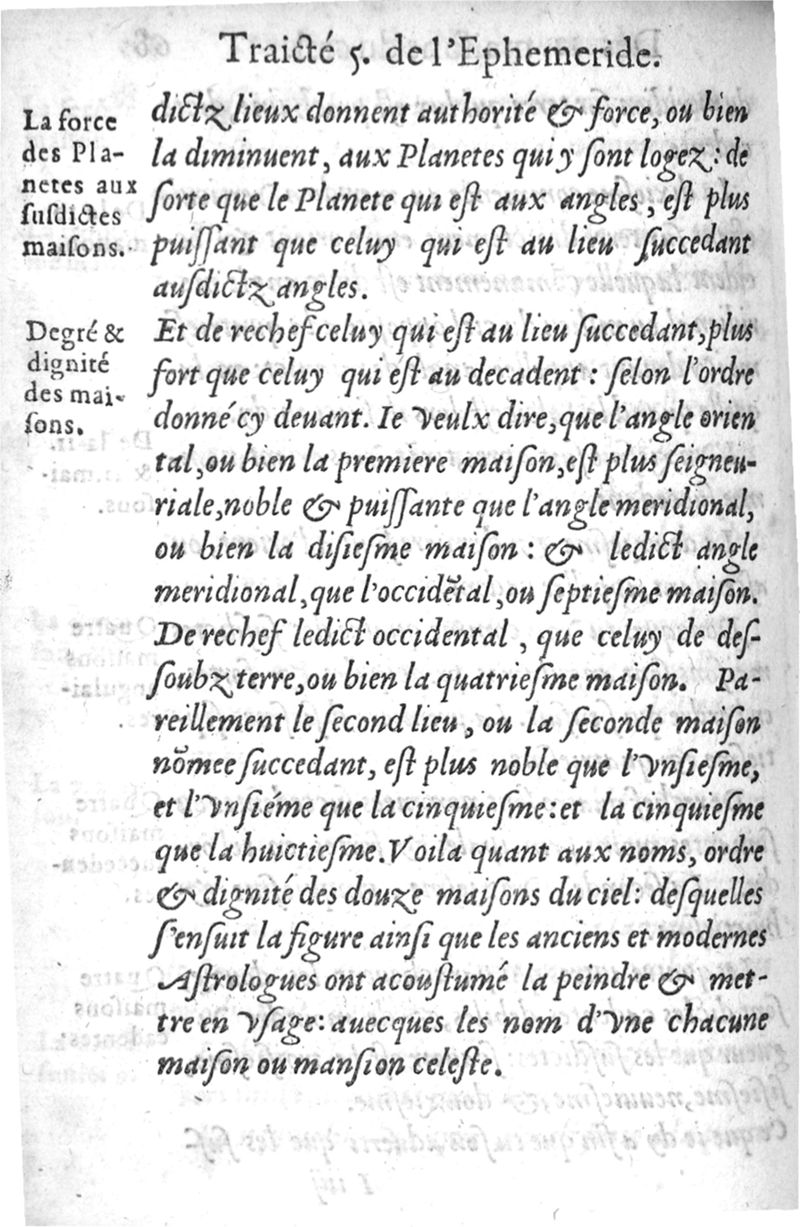 Traicté 5. de l'Ephemeride.
La force
des Pla-
netes aux
ſuſdictes
maiſons.
dictz lieux donnent authorité & force, ou bien
la diminuent, aux Planetes qui y ſont logez: de
ſorte que le Planete qui eſt aux angles, eſt plus
puiſſant que celuy qui eſt au lieu ſuccedant
auſdictz angles.
Degré &
dignité
des mai-
ſons.
Et de rechef celuy qui eſt au lieu ſuccedant, plus
fort que celuy qui eſt au decadent: ſelon l'ordre
donné cy deuant. Ie veulx dire, que l'angle orien
tal, ou bien la premiere maiſon, eſt plus ſeigneu-
riale, noble & puiſſante que l'angle meridional,
ou bien la diſieſme maiſon: & ledict angle
meridional, que l'occidẽtal, ou ſeptieſme maiſon.
De rechef ledict occidental, que celuy de deſ-
ſoubz terre, ou bien la quatrieſme maiſon. Pa-
reillement le ſecond lieu, ou la ſeconde maiſon
nõmee ſuccedant, eſt plus noble que l'vnſieſme,
et l'vnſiéme que la cinquieſme: et la cinquieſme
que la huictieſme. Voila quant aux noms, ordre
& dignité des douze maiſons du ciel: deſquelles
ſ'enſuit la figure ainſi que les anciens et modernes
Aſtrologues ont acouſtumé la peindre & met-
tre en vſage: auecques les nom d'vne chacune
maiſon ou manſion celeſte.